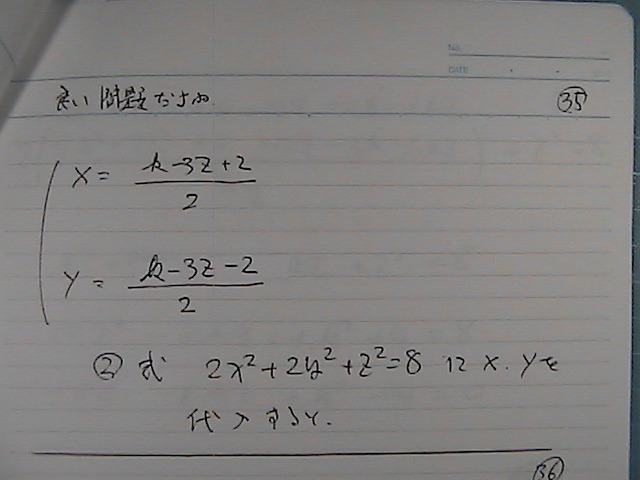 No.
DATE
良い問題だすわ。 ㉟
x = (k-3z+2)/2
y = (k-3z-2)/2
② 式 2x²+2y²+z²=8 に x. yを
代入すると.
㊱